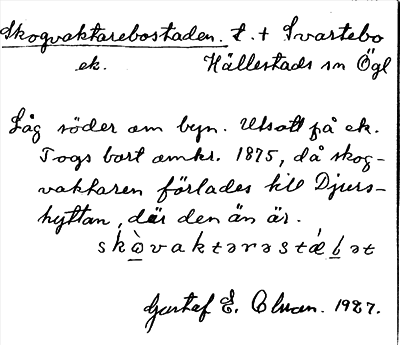 Skogvaktarebostaden. t. t Svartebo
ek. Hällestads sn Ögl
Låg söder om byn. Utsatt på ek.
Togs bort omkr. 1875, då skog-
vaktaren förlades till Djurs-
hyttan, där den än är.
skòvaktərəstǽbət
Gustaf E. Olsson. 1927.